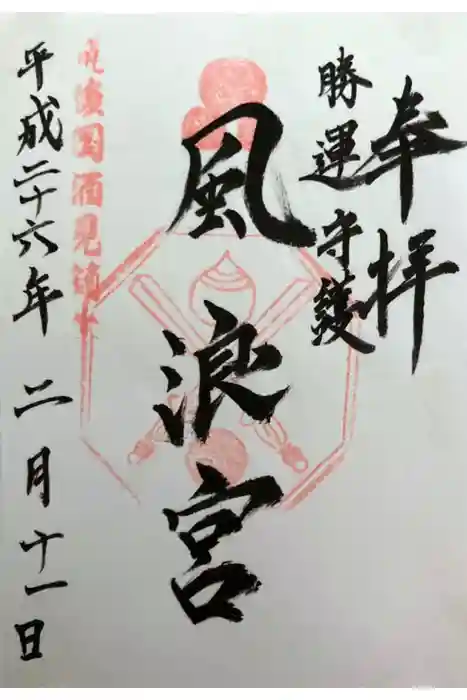 奉拝
勝運守護
風浪宮
筑後国酒見鎮士
平成二十六年 二月十一日